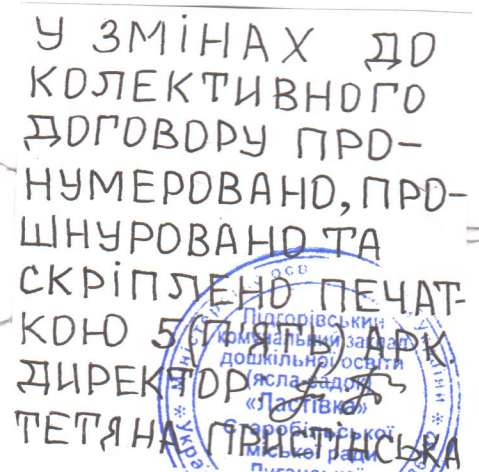 У ЗМІНАХ ДО
КОЛЕКТИВНОГО
ДОГОВОРУ ПРО-
НУМЕРОВАНО, ПРО-
ШНУРОВАНО ТА
СКРІПЛЕНО ПЕЧАТ-
КОЮ 5 (П'ЯТЬ) АРК.
ДИРЕКТОР
ТЕТЯНА ПРИСТІНСЬКА
Підгорівський
комунальний заклад
дошкільної освіти
(ясла-садок)
«Ластівка»
Старобільської
міської ради
Луганської